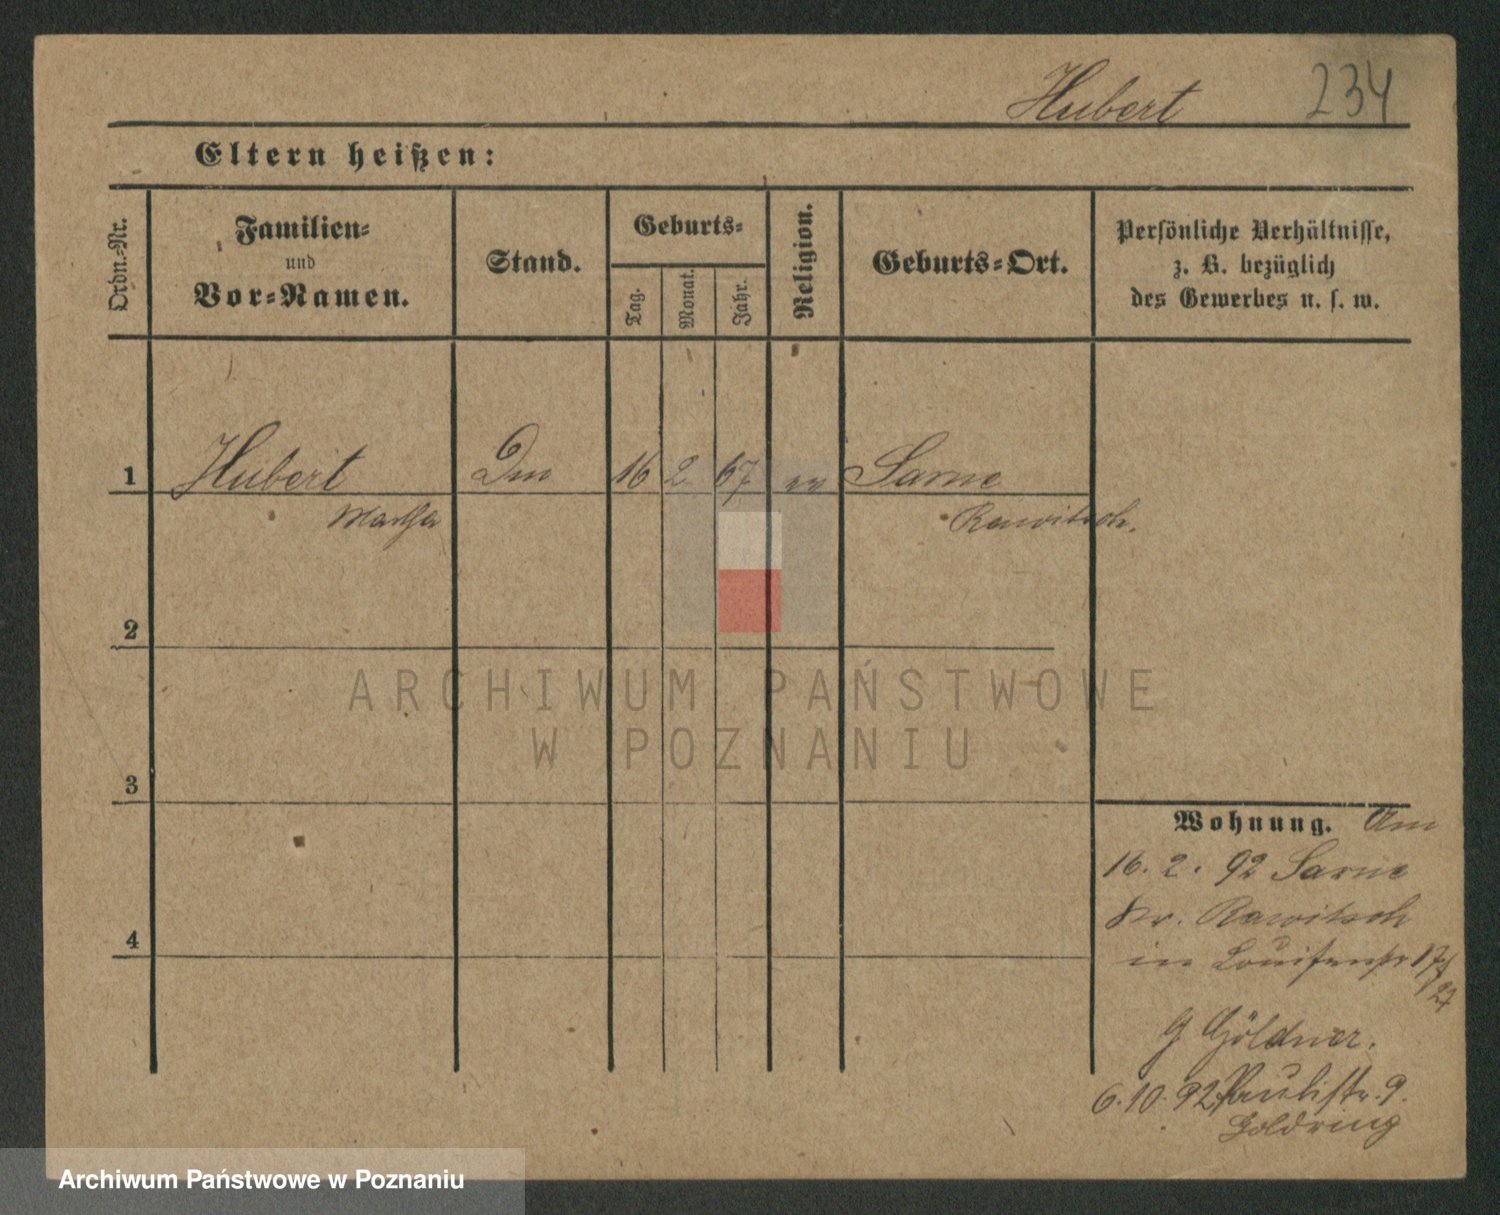 Hubert 234
Eltern heißen:
Ordn.-Nr.
Familien-
und
Vor-Namen.
Stand.
Geburts-
Tag.
Monat.
Jahr.
Religion.
Geburts-Ort.
Persönliche Verhältnisse,
z. B. bezüglich
des Gewerbes u. s. w.
1 Hubert 16 2 67 ev Sarne
Martha Rawitsch.
2
3
4
Wohnung. Am
16. 2. 92 Sarne
Kr. Rawitsch
in Louisenstr 17
G Göldner.
6.10.92 Paulistr. 9.
Goldring
ARCHIWUM PAŃSTWOWE
W POZNANIU
Archiwum Państwowe w Poznaniu